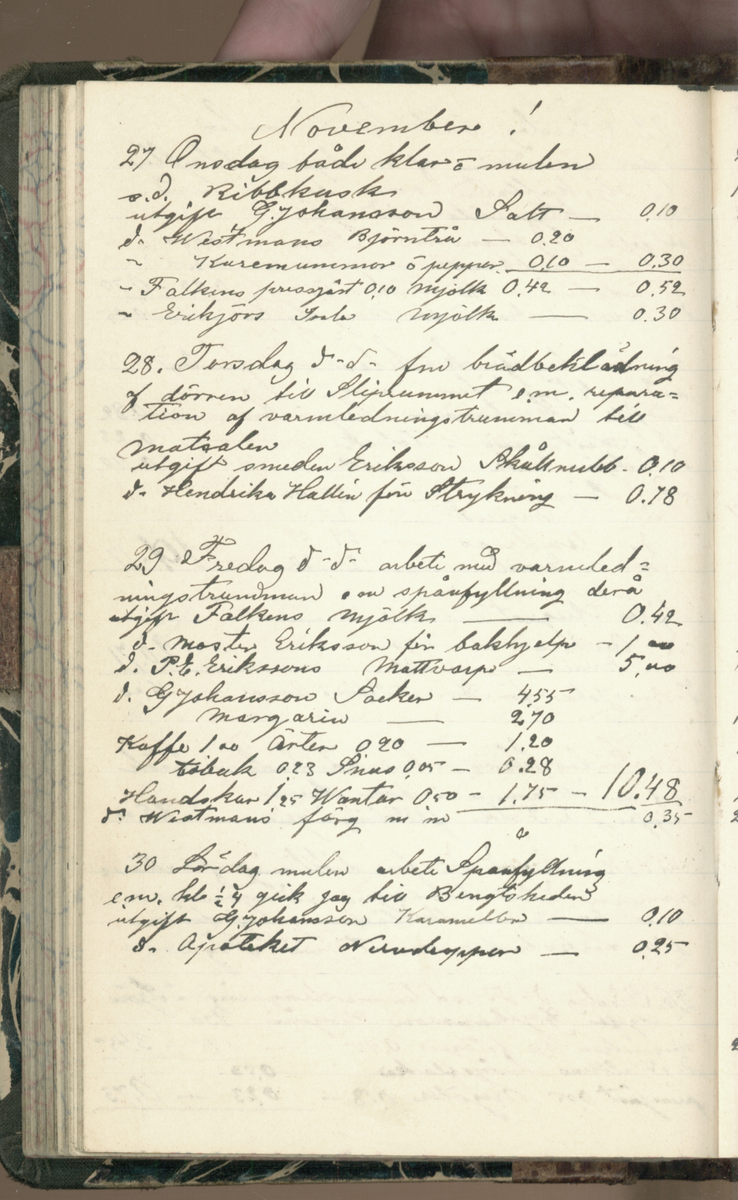 November!
27 Onsdag både klar o mulen
s.d. Ribbkusk
utgift G. Johansson Salt — 0.10
d. Westmans Björntrå — 0.20
" o peppar 0.10 — 0.30
" Falkens pressjäst 0.10 Mjölk 0.42 — 0.52
" Erikjörs Mjölk — 0.30
28. Torsdag d-d- fm brädbeklädning
af dörren till Sliprummet e.m. repara=
tion af varmledningstrumman till
matsalen
utgift smeden Eriksson Skållnubb - 0.10
d. Hendrika Hallin för Strykning — 0.78
29 Fredag d-d- arbete med varmled=
ningstrumman o en spånfyllning derå
utgift Falkens Mjölk — 0.42
d. moster Eriksson för bakhjelp - 1,00
d. P.E. Erikssons Mattvarp — 5,00
d. G Johansson Socker — 4.55
Margarin — 2.70
Kaffe 1 00 Ärter 0.20 — 1.20
tobak 0.23 Snus 0,05 - 0.28
Handskar 1,25 Wantar 0.50 - 1.75 - 10.48
d. Westmans färg m m 0.35
30 Lördag mulen arbete Spånfyllning
e.m. kl ½ 4 gick jag till Bengtsheden
utgift G. Johansson Karameller — 0.10
d. Apoteket Nervdroppar — 0.25